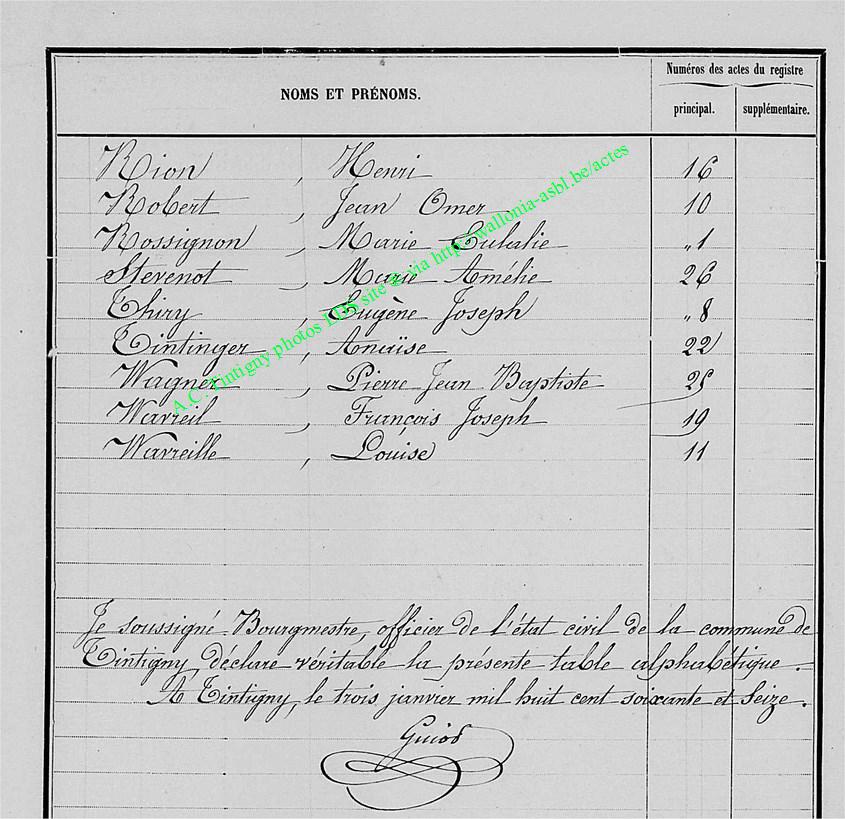 NOMS ET PRÉNOMS.
Numéros des actes du registre
principal.
supplémentaire.
Rion , Henri 16
Robert , Jean Omer 10
Rossignon , Marie Eulalie „1
Stevenot , Marie Amélie 26
Thiry , Eugène Joseph „8
Tintinger , Anaïse 22
Wagner , Pierre Jean Baptiste 25
Warreil , François Joseph 19
Warreille , Louise 11
A.C. Tintigny photos LDS site @ via http://wallonia-asbl.be/actes
Je soussigné Bourgmestre, officier de l'état civil de la commune de
Tintigny, déclare véritable la présente table alphabétique.
A Tintigny, le trois janvier mil huit cent soixante et seize.